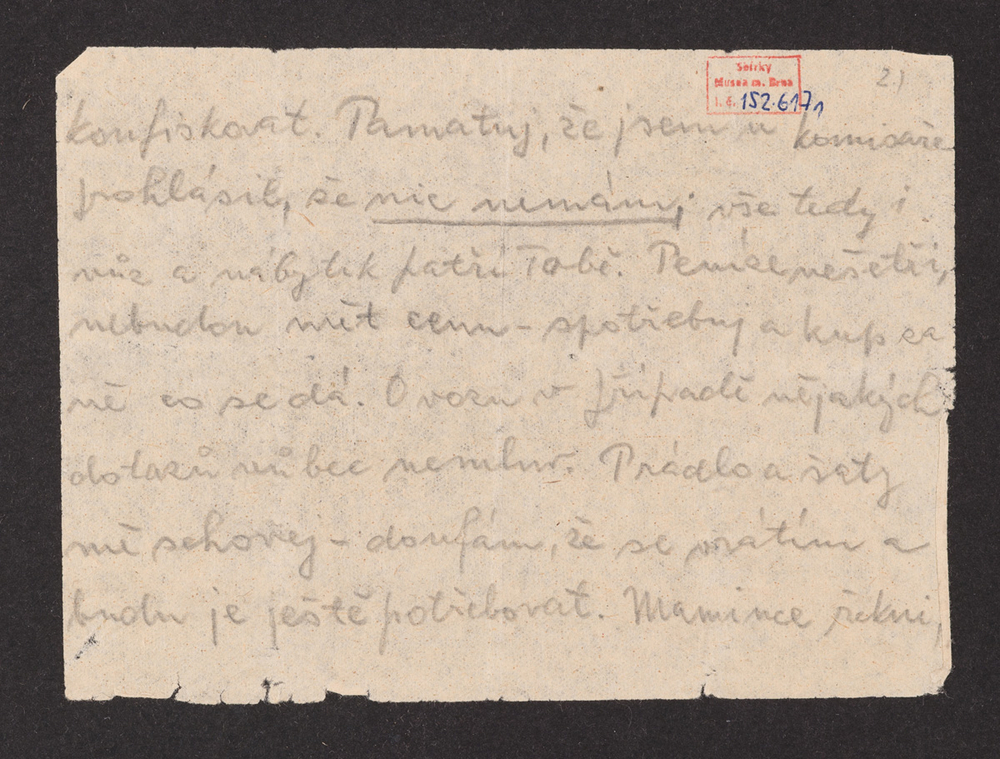 Sbírky
Musea m. Brna
i. č. 152.617/1
2)
konfiskovat. Pamatuj, že jsem u komisaře
prohlásil, že nic nemám; vše tedy i
vůz a nábytek patří Tobě. Peníze nešetři,
nebudou mít cenu – spotřebuj a kup za
ně co se dá. O vozu v případě nějakých
dotazů vůbec nemluv. Prádlo a šaty
mě schovej – doufám, že se vrátím a
budu je ještě potřebovat. Mamince řekni,